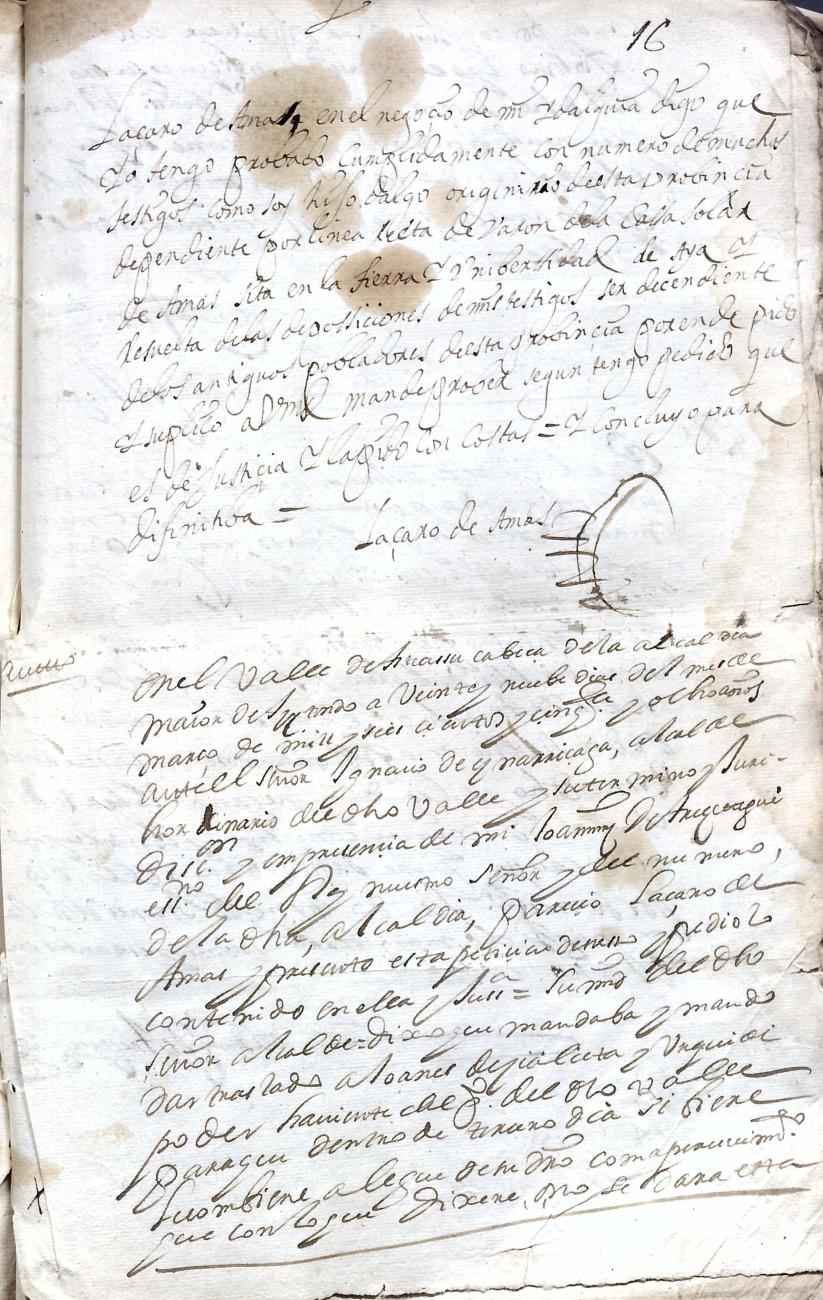 16
Laçaro de Amas en el negoçio de mi Ydalguia digo que
Yo tengo probado Cumplidamente con numero de muchos
testigos como soy hijo dalgo originario de esta provincia
dependiente por linea recta de Varon de la Cassa solar
de Amas sita en la tierra Y Vnibersidad de Aya Y
Resulta de las deposiciones de mis testigos ser decendiente
de los antiguos pobladores de esta provinçia por ende pido
Y suplico a Vmd mande prober segun tengo pedido que
es de Justicia Y la pido con Costas = Y Concluyo para
difinitiba =
Laçaro de Amas
En el Valle de cabeça de la alcaldia
maior de a Veinte y nuebe dias del mes de
março de mill y seis cientos y cinqta y ocho años
ante el señor Ignacio de ynarriçaga, alcalde
hordinario del dho Valle y su termino y Juri-
disi.on y en presencia de mi Joannes De
ess.no del Rey nuestro Señor y del numero,
de la dha, alcaldia, pareçio Laçaro de
Amas y presento esta peticion de suso y pedio lo
contenido en ella y Just.a = Su md del dho
Señor alcalde = dixo que mandaba y mando
dar traslado a Joanes de y Urquidi
poder haviente del dho Valle
para que dentro de terzero dia si biene
que con lo que dixere, o no se dara esta